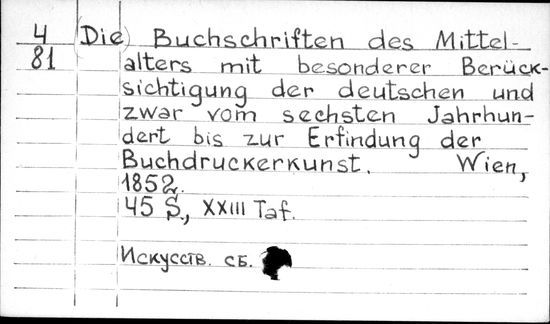 4 (Die) Buchschriften des Mittel-
81 alters mit besonderer Berück-
sichtigung der deutschen und
zwar vom sechsten Jahrhun-
dert bis zur Erfindung der
Buchdruckerkunst. Wien,
1852.
45 S., XXIII Taf.
Искусств. сб.